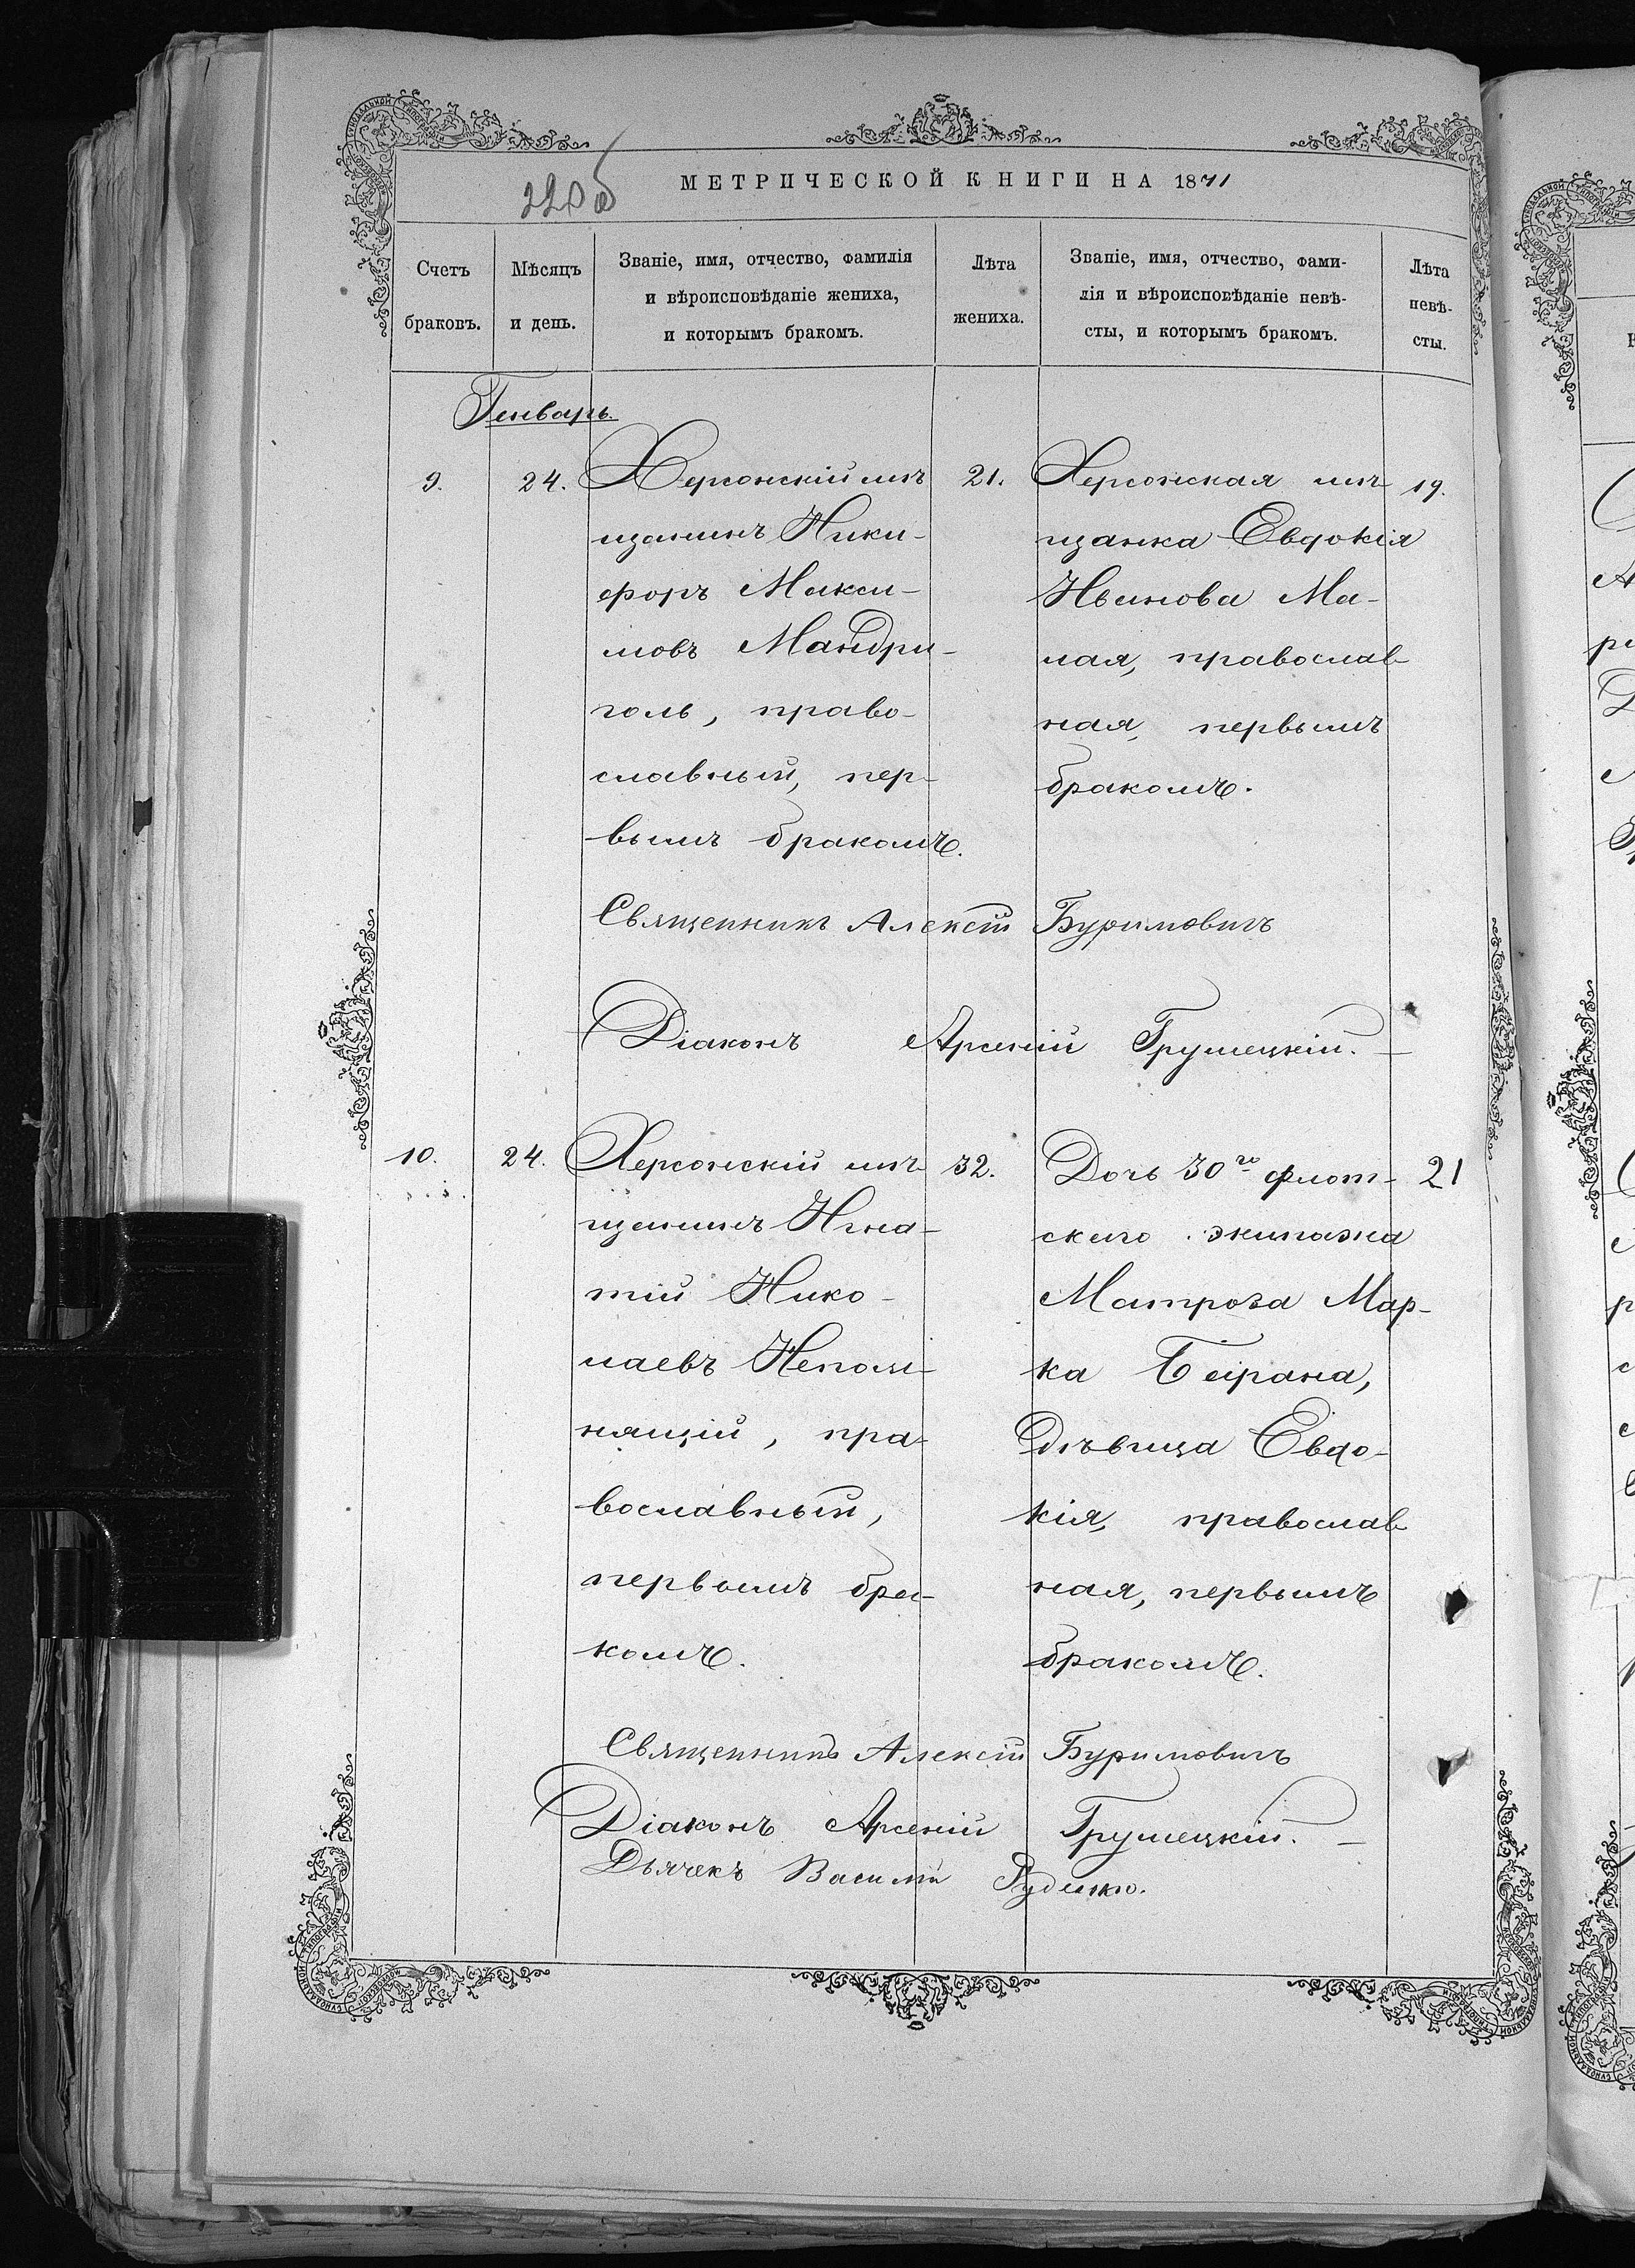 МЕТРИЧЕСКОЙ КНИГИ НА 1871
Счетъ браковъ.
Мѣсяцъ и день.
Званіе, имя, отчество, фамилія
и вѣроисповѣданіе жениха,
и которымъ бракомъ.
Лѣта жениха.
Званіе, имя, отчество, фами-
лія и вѣроисповѣданіе невѣ-
сты, и которымъ бракомъ.
Лѣта невѣ-
сты.
Генварь.
9.
24.
Херсонскій мѣ
щанинъ Ники-
форъ Макси-
мовъ Мандри-
голь, право-
славный, пер-
вымъ бракомъ.
21.
Херсонская мѣ
щанка Евдокія
Иванова Ма-
лая, православ
ная, первымъ
бракомъ.
19.
Священникъ Алексій Буримовичъ
Діаконъ Арсеній Грушецкій.
10.
24.
Херсонскій мѣ
щанинъ Игна-
тій Нико-
лаевъ Непом-
нящій, пра-
вославный,
первымъ бра-
комъ.
32.
Дочь 30го флот-
скаго экипажа
Матроза Мар-
ка
дѣвица Евдо-
кія, православ
ная, первымъ
бракомъ.
21
Священникъ Алексій Буримовичъ
Діаконъ Арсеній Грушецкій.
Дьячекъ Василій Руденко.